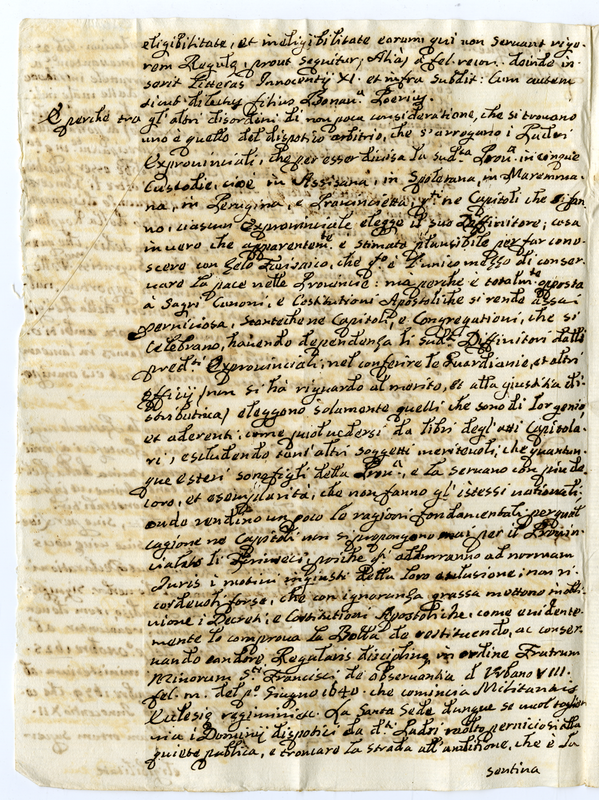 eligibilitate, et ineligibilitate eorum qui non servant rigo-
rem Regulę, prout sequitur, Alias à fel. recor. deinde in-
serit litteras Innocentij XI. et infra subdit: Cum autem
sicut dilectus filius Bonau.ª
E perche tra gl'altri disordini di non poca consideratione, che si trovano
uno è quello del dispotico arbitrio, che s'arrogano i Padri
Exprovinciali, che per esser divisa la sud.ta Prou.ª in cinque
Custodie, cioè in Assisana, in Spoletana, in Maremma-
na, in Perugina, e ne Capitoli che si fan-
no, ciascun Exprovinciale elegge il suo Diffinitore; cosa
invero che apparentem.te è stimata plausibile per far cono-
scere con Zelo che q.to è l'unico mezzo di conser-
vare la pace nelle Provincie: ma perche è totalm.te opposta
a Sagri Canoni, e Costitutioni Apostoliche si rende assai
perniciosa, stanteche ne Capitoli, e Congregationi, che si
celebrano, havendo dependenza li sud.ti Diffinitori dalli
pred.ti Exprovinciali, nel conferire le Guardianie, et altri
officij (non si hà riguardo al merito, et alla giustitia di-
stributiva) eleggono solamente quelli che sono di lor genio,
et aderenti, come può vedersi da libri degl'atti Capitola-
ri, escludendo tant'altri soggetti meritevoli, che quantun-
que esteri sono figli della Prou.ª, e la servano con più de-
coro, et esemplarità, che non fanno gl'istessi nationali,
ondo rendino un poco le ragioni fondamentali per qual
cagione ne Capitoli non si propongono mai per il Provin-
cialato li poiche si addurranno ad normam
Juris i motivi ingiusti della loro esclusione, non ri-
cordevoli forse, che con ignoranza grassa mettono in obli-
vione i Decreti, e Costitutioni Apostoliche, come evidente-
mente lo comprova la Bolla de restituendo, ac conser-
vando candore Regularis disciplinę in ordine Fratrum
Minorum S.ti Francisci de observantia d' Urbano VIII.
fel. m. del p.º Giugno 1640. che comincia Militantis
Ecclesię regimini &c. La Santa Sede dunque se vuol toglier
via i Dominij dispotici da d.ti Padri molto perniciosi alla
quiete publica, e troncare la strada all'ambitione, che è la
sentina